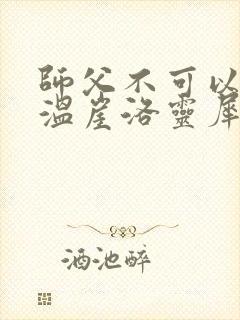 師父不可以
溫崖洛靈犀
酒池醉